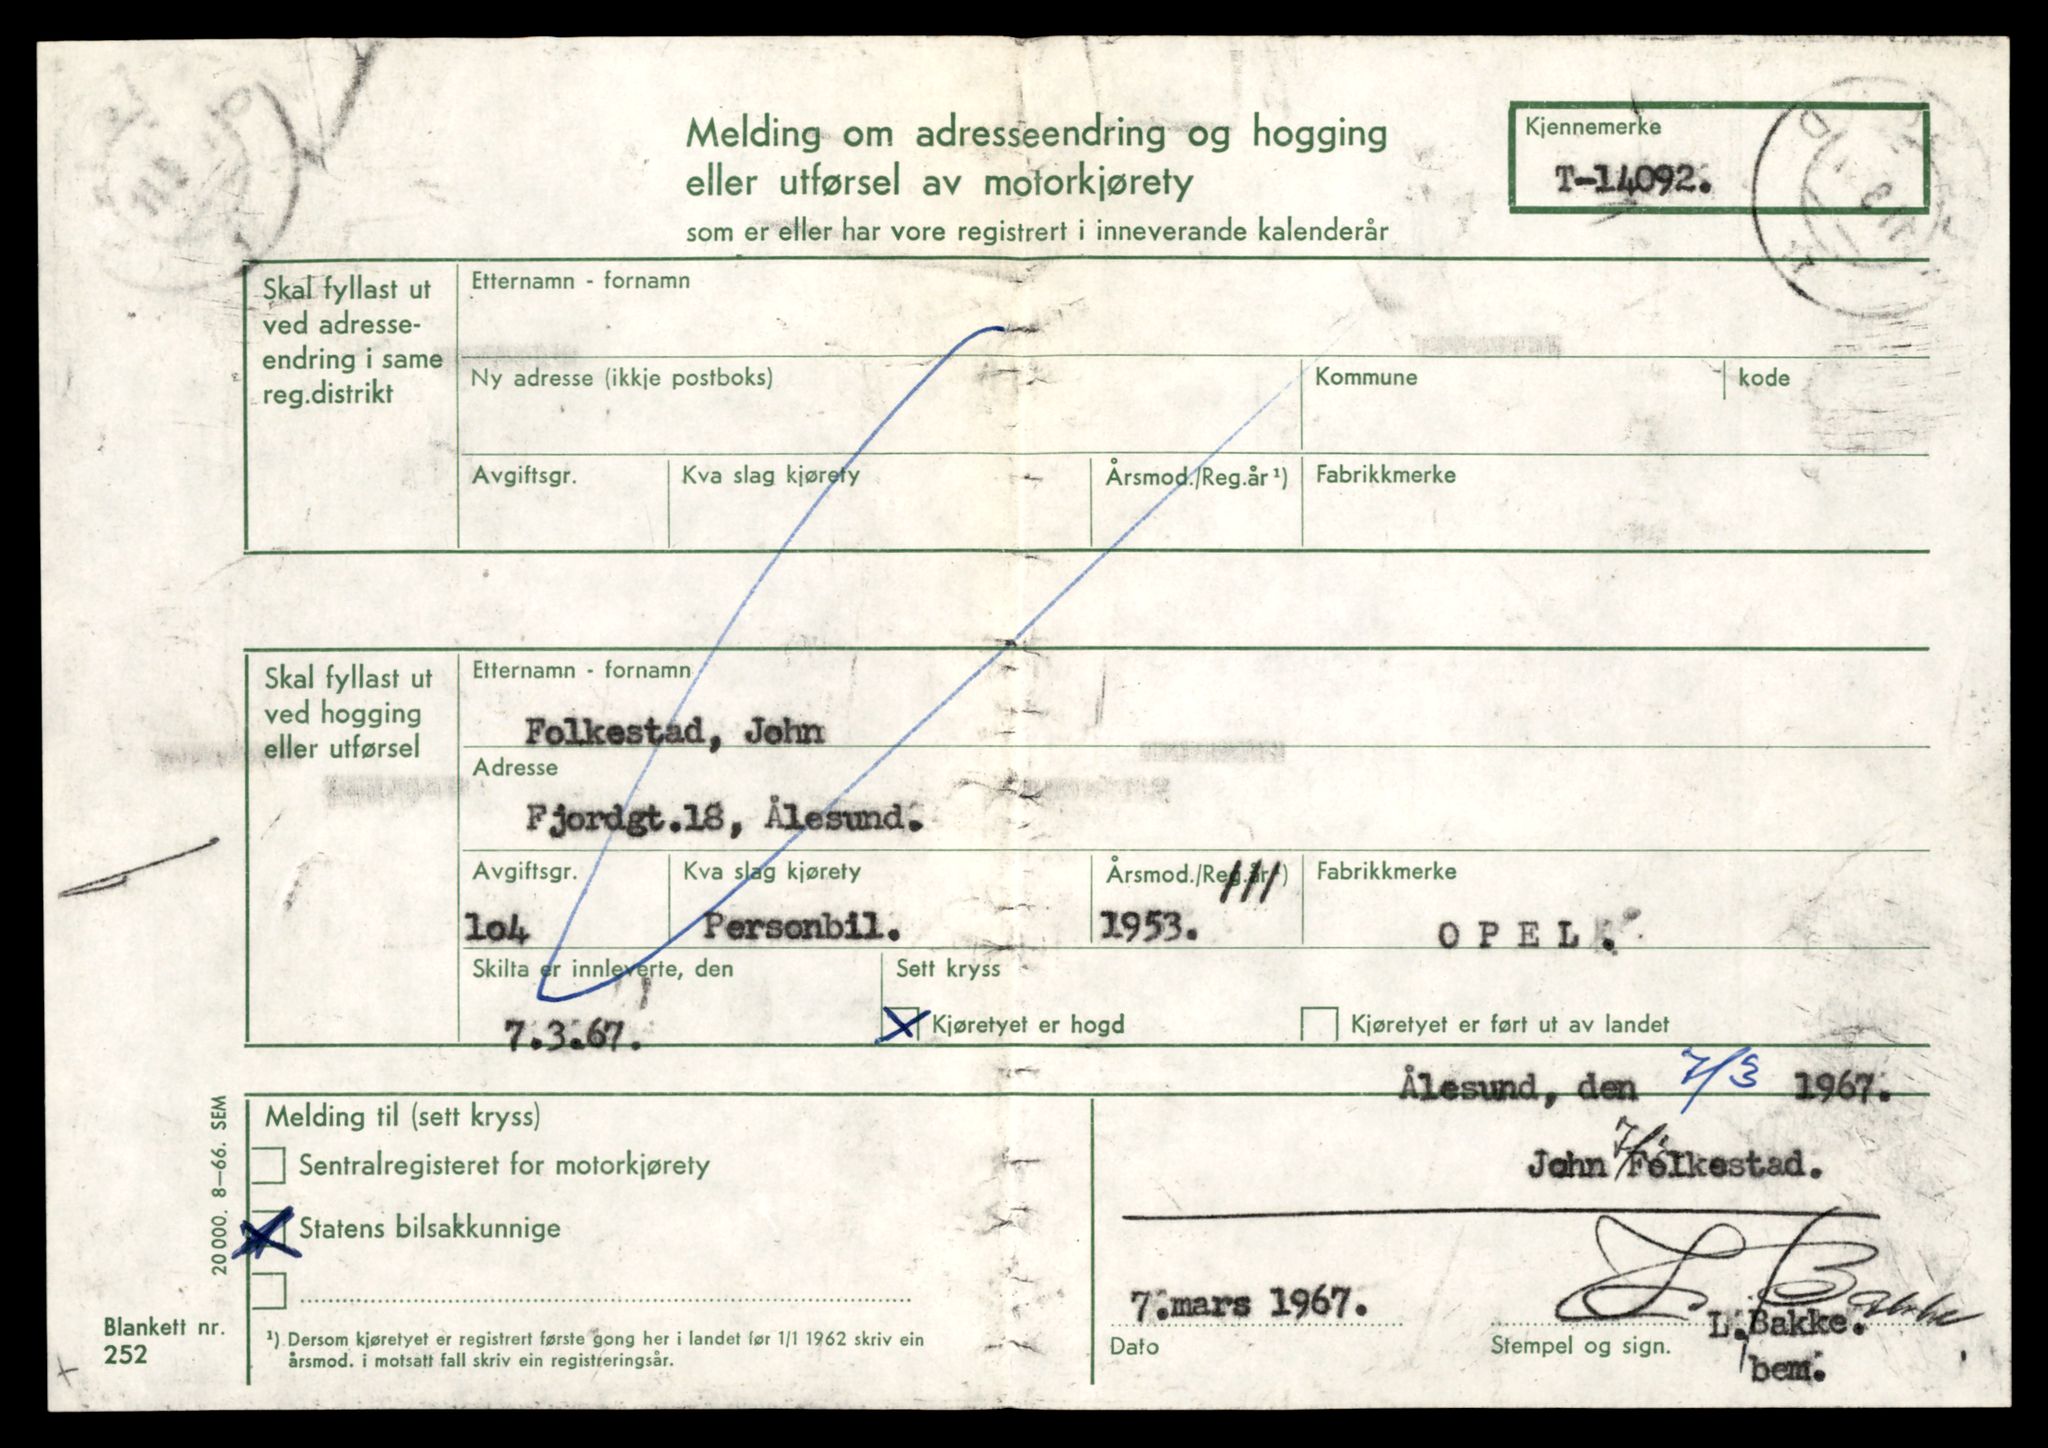 Melding om adresseendring og hogging
eller utførsel av motorkjørety
som er eller har vore registrert i inneverande kalenderår
Kjennemerke
T-14092.
Skal fyllast ut
ved adresse-
endring i same
reg.distrikt
Etternamn - fornamn
Ny adresse (ikkje postboks)
Kommune
kode
Avgiftsgr.
Kva slag kjørety
Årsmod./Reg.år ¹)
Fabrikkmerke
Skal fyllast ut
ved hogging
eller utførsel
Etternamn - fornamn
Folkestad, John
Adresse
Fjordgt.18, Ålesund.
Avgiftsgr.
Kva slag kjørety
Årsmod./Reg.år ¹)
Fabrikkmerke
lo4
Personbil.
1953.
O P E L .
Skilta er innleverte, den
Sett kryss
7.3.67.
Kjøretyet er hogd
Kjøretyet er ført ut av landet
Ålesund, den 7/3 1967.
Melding til (sett kryss)
Sentralregisteret for motorkjørety
John Folkestad.
Statens bilsakkunnige
20 000. 8–66. SEM
L. Bakke
7.mars 1967.
L.Bakke.
Dato
Stempel og sign.
bem.
Blankett nr.
252
¹) Dersom kjøretyet er registrert første gong her i landet før 1/1 1962 skriv ein
årsmod. i motsatt fall skriv ein registreringsår.